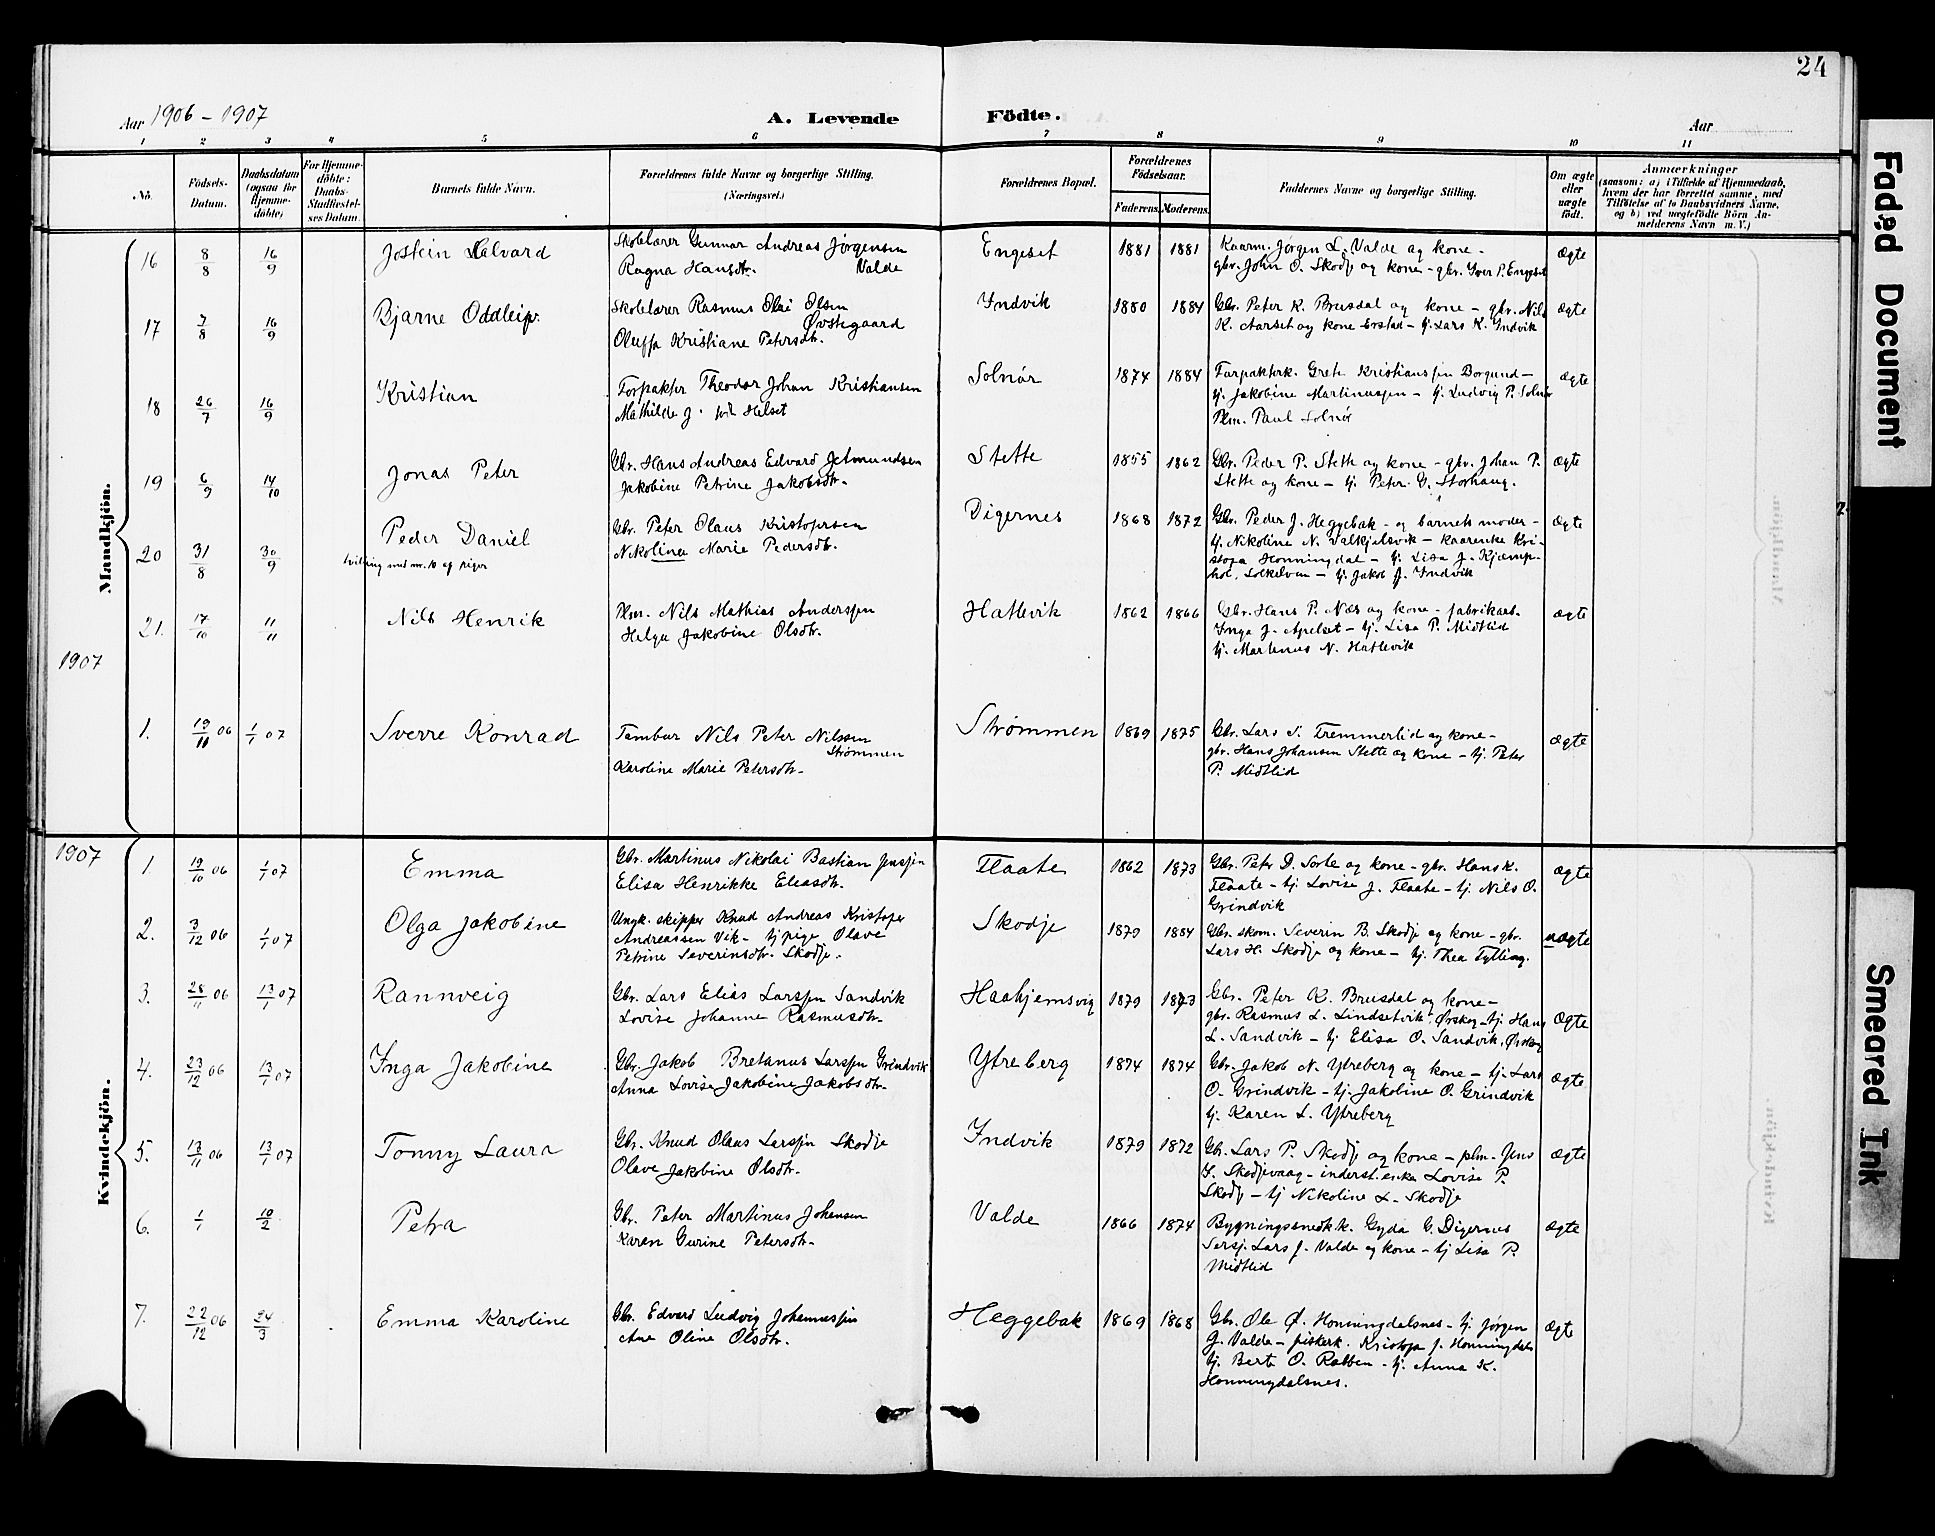 24
Aar 1906 – 1907
A. Levende Födte.
Aar
1 2 3 4 5 6 7 8 9 10 11
No.
Födsels-Datum.
Daabsdatum (ogsaa for Hjemme-döbte)
For Hjemme-döbte: Daabs-Stadfæstel-ses Datum.
Barnets fulde Navn.
Forældrenes fulde Navne og borgerlige Stilling. (Næringsvei.)
Forældrenes Bopæl.
Forældrenes Födselsaar.
Faderens. Moderens.
Faddernes Navne og borgerlige Stilling.
Om ægte eller uægte födt.
Anmærkninger
(saasom: a) i Tilfælde af Hjemmedaab,
hvem der har forrettet samme, med
Tilföielse af to Daabsvidners Navne,
og b) ved uægtefödte Börn An-
melderens Navn m. V.)
Mandkjön.
16 8/8 16/9 Jostein Halvard
Skolelærer Gunnar Andreas Jørgensen Valde
Ragna Hansdtr.
Engeset 1881 1881
Kaarm. Jørgen L. Valde og kone –
gbr. John O. Skodje og kone – gbr. Iver P. Engeset
ægte
17 7/8 16/9 Bjarne Oddleiv
Skolelærer Rasmus Elai Olsen Øvstegaard
Oluffa Kristiane Petersdtr.
Indvik 1880 1884
Gbr. Peter K. Brusdal og kone – gbr. Nils
K. Aarset og kone Erstad – tj. Lars K. Indvik
ægte
18 26/7 16/9 Kristian
Forpakter Theodor Johan Kristiansen
Mathilde J. født Helset
Solnør 1874 1884
Forpakterk. Grete Kristianssen Borgund –
tj. Jakobine Martinussen – tj. Ludvig P. Solnør
Plm. Paul Solnør
ægte
19 6/9 14/10 Jonas Peter
Gbr. Hans Andreas Edvard Jetmundsen
Jakobine Petrine Jakobsdtr.
Stette 1855 1862
Gbr. Peder P. Stette og kone – gbr. Johan P.
Stette og kone – tj. Peter G. Storhaug.
ægte
20 31/8 30/9 Peder Daniel
tvilling med nr. 10 af piger
Gbr. Peter Olaus Kristofersen
Nikolina Marie Pedersdtr.
Digernes 1868 1872
Gbr. Peder J. Heggebak – og barnets moder –
tj. Nikoline N. Valkjelsvik – kaarenke Kri-
stofa Honningdal – tj. Lisa J. Kjemp-
hol, Solkelvan – tj. Jakob J. Indvik
ægte
21. 17/10 11/11 Nils Henrik
Plm. Nils Mathias Anderssen
Helga Jakobine Olsdtr.
Hattevik 1862 1866
Gbr. Hans P. Næs og kone – fabrikarb.
Inga J. Apelset – tj. Lisa P. Midtlid
tj. Martinus N. Hatlevik
ægte
1907
1. 19/11 06 1/1 07 Sverre Konrad
Tambur Nils Peter Nilssen Strømmen
Karoline Marie Petersdtr.
Strømmen 1869 1875
Gbr. Lars S. Fremmerlid og kone –
gbr. Hans Johansen Stette og kone – tj. Peter
P. Midtlid
ægte
Kvindekjön.
1907
1. 19/10 06 1/1 07 Emma
Gbr. Martinus Nikolai Bastian Jenssen
Elisa Henrikke Eliasdtr.
Flaate 1862 1873
Gbr. Peter D. Sorte og kone – gbr. Hans K.
Flaate – tj. Lovise J. Flaate – tj. Nils O.
Grindvik
ægte
2. 3/12 06 1/1 07 Olga Jakobine
Ungk. skipper Knud Andreas Kristofer
Andreassen Vik – tj pige Olave
Petrine Severinsdtr. Skodje.
Skodje 1879 1884
Gbr. skom. Severin B. Skodje og kone – gbr.
Lars H. Skodje og kone – tj. Thea Fylling.
uægte
3. 28/11 06 13/1 07 Rannveig
Gbr. Lars Elias Larssen Sandvik
Lovise Johanne Rasmusdtr.
Haahjemsvig 1879 1873
Gbr. Peter K. Brusdal og kone –
gbr. Rasmus L. Lindsetvik, Ørskog – tj. Hans
L. Sandvik – tj Elisa O. Sandvik, Ørskog
ægte
4. 23/12 06 13/1 07 Inga Jakobine
Gbr. Jakob Bretanus Larssen Grindvik
Anna Lovise Jakobine Jakobsdtr.
Ytreberg 1874 1874
Gbr. Jakob N. Ytreberg og kone – tj. Lars
O. Grindvik – tj. Jakobine O. Grindvik
tj. Karen L. Ytreberg
ægte
5. 13/11 06 13/1 07 Tonny Laura
Gbr. Knud Olaus Larssen Skodje
Olave Jakobine Olsdtr.
Indvik 1879 1872
Gbr. Lars P. Skodje og kone – plm. Jens
I. Skodjevaag – inderst.enke Lovise P.
Skodje – tj Nikoline L. Skodje
ægte
6. 1/1 10/2 Petra
Gbr. Peter Martinus Johansen
Karen Gurine Petersdtr.
Valde 1866 1874
Bygningssnedk.k. Gyda G. Digernes
Sersj. Lars J. Valde og kone – tj Lisa P.
Midtlid
ægte
7. 22/12 06 24/3 Emma Karoline
Gbr. Edvard Ludvig Johannessen
Ane Oline Olsdtr.
Heggebak 1869 1868
Gbr. Ole Ø. Honningdalsnes – tj. Jørgen
J. Valde – fiskerk. Kristofa J. Honningdal
tj. Berte O. Ratben – tj. Anna K.
Honningdalsnes.
ægte
Faded Document
Smeared Ink